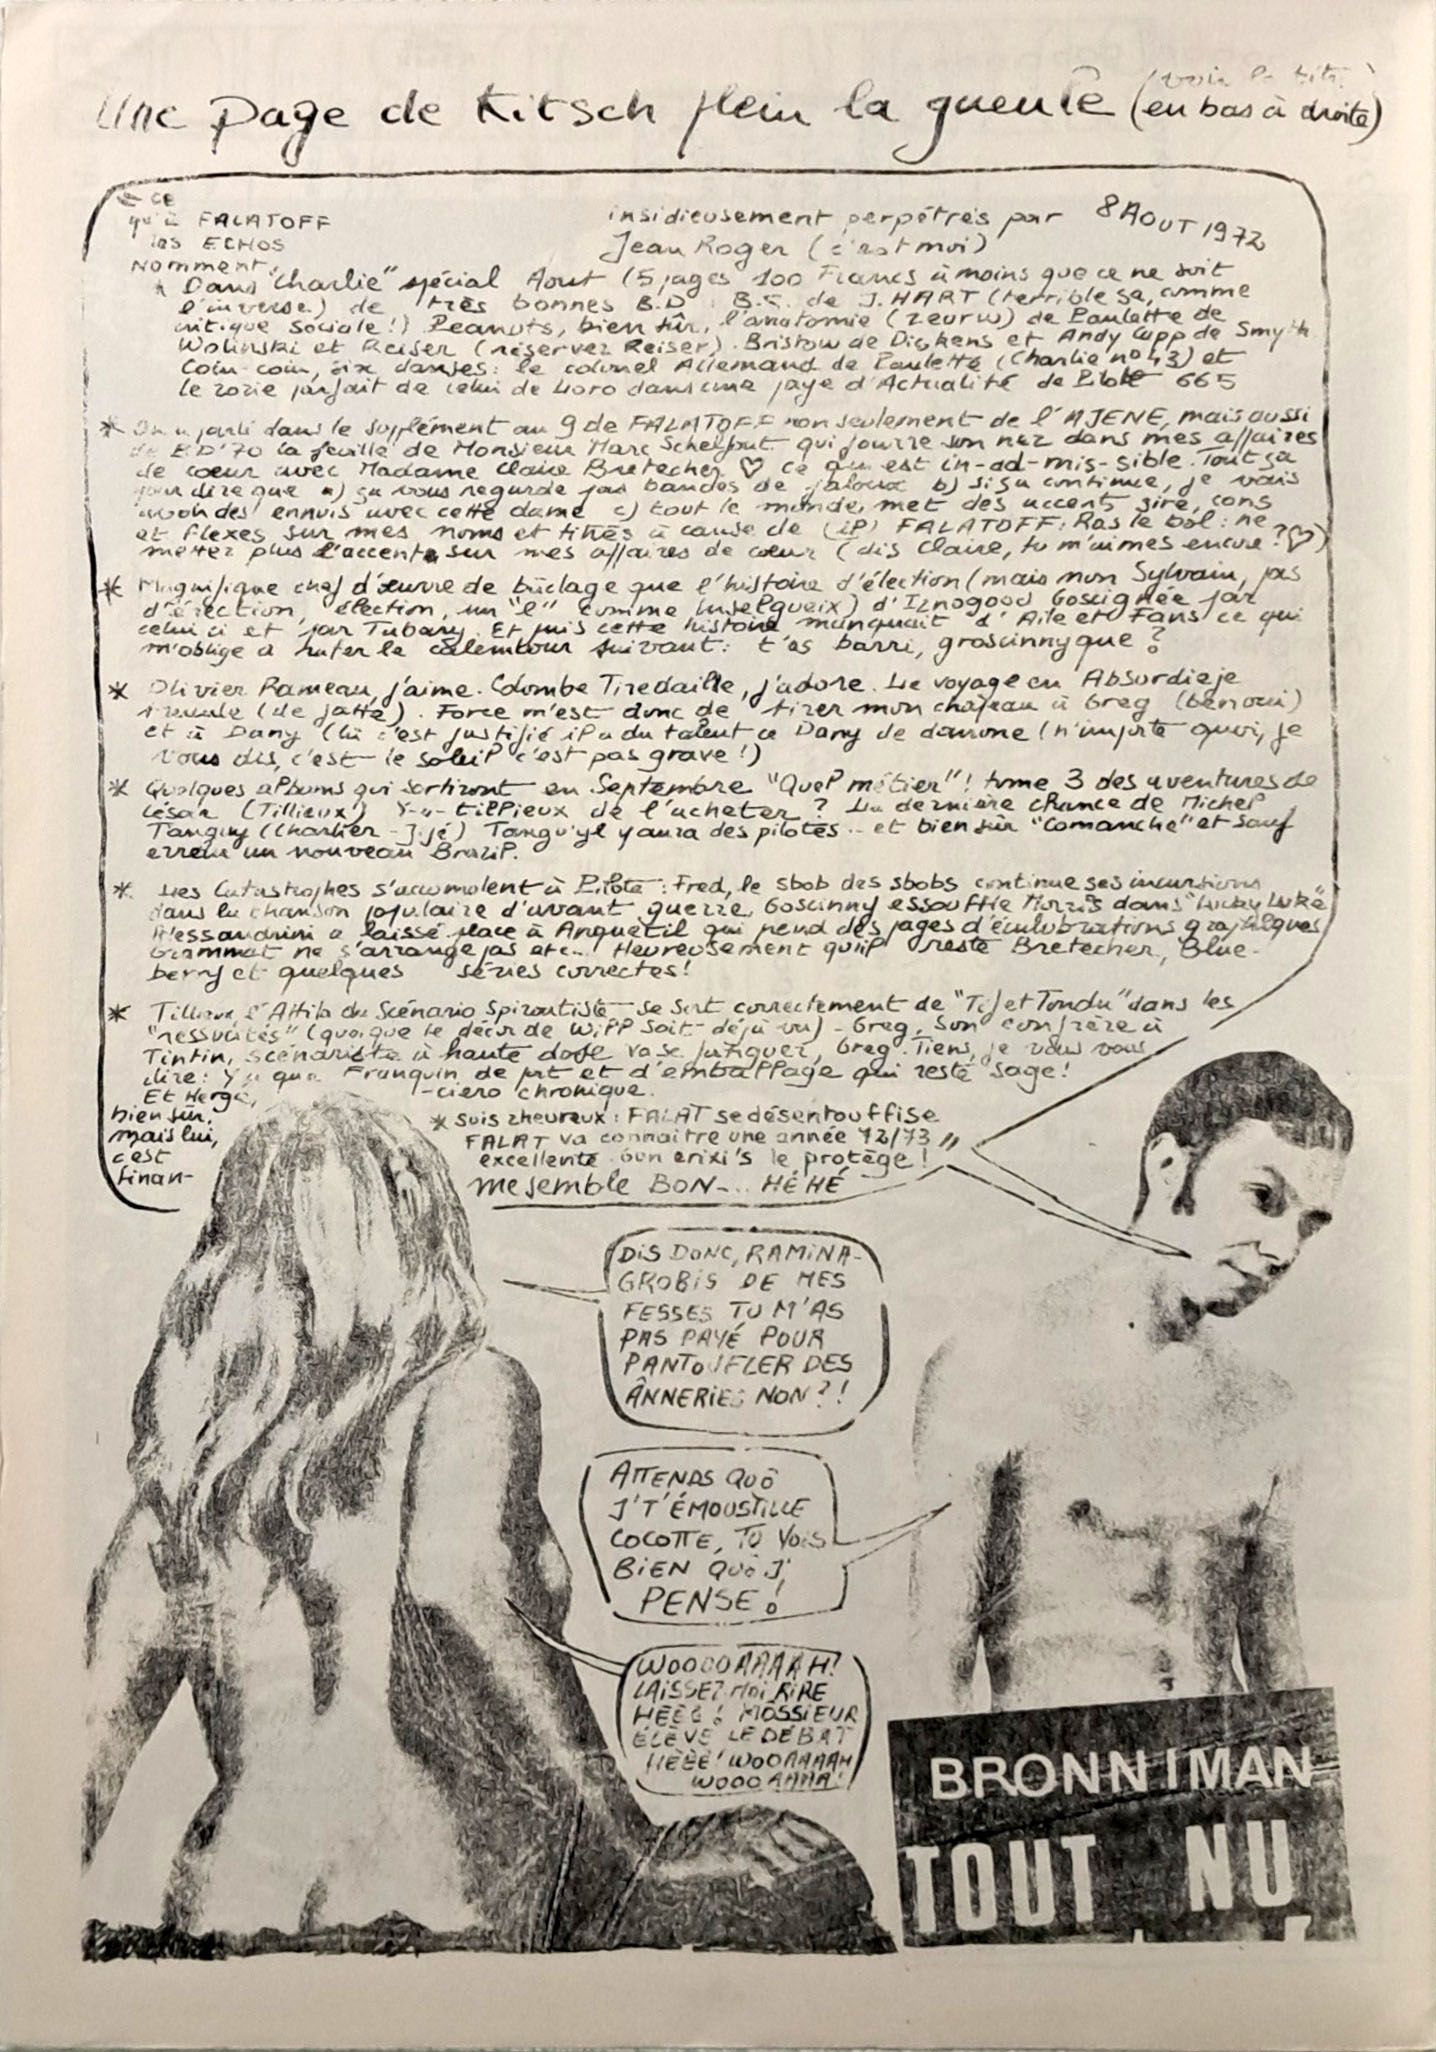 (voir le titre)
Une page de Kitsch plein la gueule (en bas à droite)
← CE
qu'à FALATOFF
les ECHOS
nomment,
insidieusement perpétrés par 8 AOUT 1972
Jean Roger (c'est moi)
* Dans "Charlie" spécial Aout (5 pages 100 Francs à moins que ce ne soit
l'inverse) de très bonnes B.D : B.C. de J. HART (terrible ça, comme
critique sociale!) Peanuts, bien sûr, l'anatomie (zeurw) de Paulette de
Wolinski et Reiser (réservez Reiser). Bristow de Dickens et Andy Capp de Smyth
Coin-coin, six danses: le colonel Allemand de Paulette (Charlie n° 43) et
le sosie parfait de celui de Loro dans une page d'Actualité de Pilote 665
* On a parlé dans le supplément au 9 de FALATOFF non seulement de l'AJENE, mais aussi
de BD'70 la feuille de Monsieur Marc Schelfout qui fourre son nez dans mes affaires
de cœur avec Madame Claire Bretecher ♡ ce qui est in-ad-mis-sible. Tout ça
pour dire que a) ça vous regarde pas bandes de jaloux b) si ça continue, je vais
avoir des ennuis avec cette dame c) tout le monde met des accents circons
et flexes sur mes noms et titres à cause de FALATOFF: Ras le bol: ne
mettez plus l'accent sur mes affaires de cœur (dis Claire, tu m'aimes encore? ♡)
* Magnifique chef d'œuvre de bâclage que l'histoire d'élection (mais non Sylvain, pas
d'érection, élection, un "l" comme d'Iznogood Goscignée par
celui ci et par Tabary. Et puis cette histoire manquait d'Aile et Fans ce qui
m'oblige à hater le calembour suivant: t'as barri, groscinnyque?
* Olivier Rameau, j'aime. Colombe Tiredaille, j'adore. Le voyage en Absurdie je
(de jatte). Force m'est donc de tirer mon chapeau à Greg (benoui)
et à Dany (là c'est justifié il a du talent ce Dany de daurone (n'importe quoi, je
vous dis, c'est le soleil c'est pas grave!)
* Quelques albums qui sortiront en Septembre "Quel métier"! tome 3 des aventures de
César (Tillieux) Y-a-tillieux de l'acheter? La dernière chance de Michel
Tanguy (Charlier - Jijé) Tangu'yl y aura des pilotes... et bien sûr "Comanche" et sauf
erreur un nouveau Brazil.
* Les Catastrophes s'accumolent à Pilote: Fred, le sbob des sbobs continue ses incursions
dans la chanson populaire d'avant guerre, Goscinny essouffle Morris dans "Lucky Luke"
Alessandrini a laissé place à Anquetil qui pend des pages d'élucubrations graphiques,
Grammat ne s'arrange pas etc... Heureusement qu'il reste Bretecher, Blue-
berry et quelques séries correctes!
* Tillieux l'Attila du Scénario Spiroutiste se sort correctement de "Tif et Tondu" dans les
"ressucités" (quoique le décor de Will soit déjà vu) - Greg, son confrère à
Tintin, scénariste à haute dose va se fatiguer, Greg. Tiens, je vais vous
dire: Y a que Franquin de port et d'emballage qui reste sage!
Et Hergé,
bien sûr,
mais lui,
c'est
finan-
-ciero chronique.
* suis zheureux: FALAT se désentouffise
FALAT va connaitre une année 72/73
excellente. le protège!
me semble BON... HÉHÉ
DIS DONC, RAMINA-
GROBIS DE MES
FESSES TU M'AS
PAS PAYÉ POUR
PANTOUFLER DES
ÂNNERIES NON?!
ATTENDS QUÔ
J'T'ÉMOUSTILLE
COCOTTE, TU VOIS
BIEN QUÔ J'
PENSE!
WOOOOAAAAH!
LAISSEZ MOI RIRE
HÈÈÈ! MÔSSIEUR
ÉLÈVE LE DÉBAT
HÈÈÈ! WOOAAAAH
WOOOAAAA!
BRONNIMAN
TOUT NU